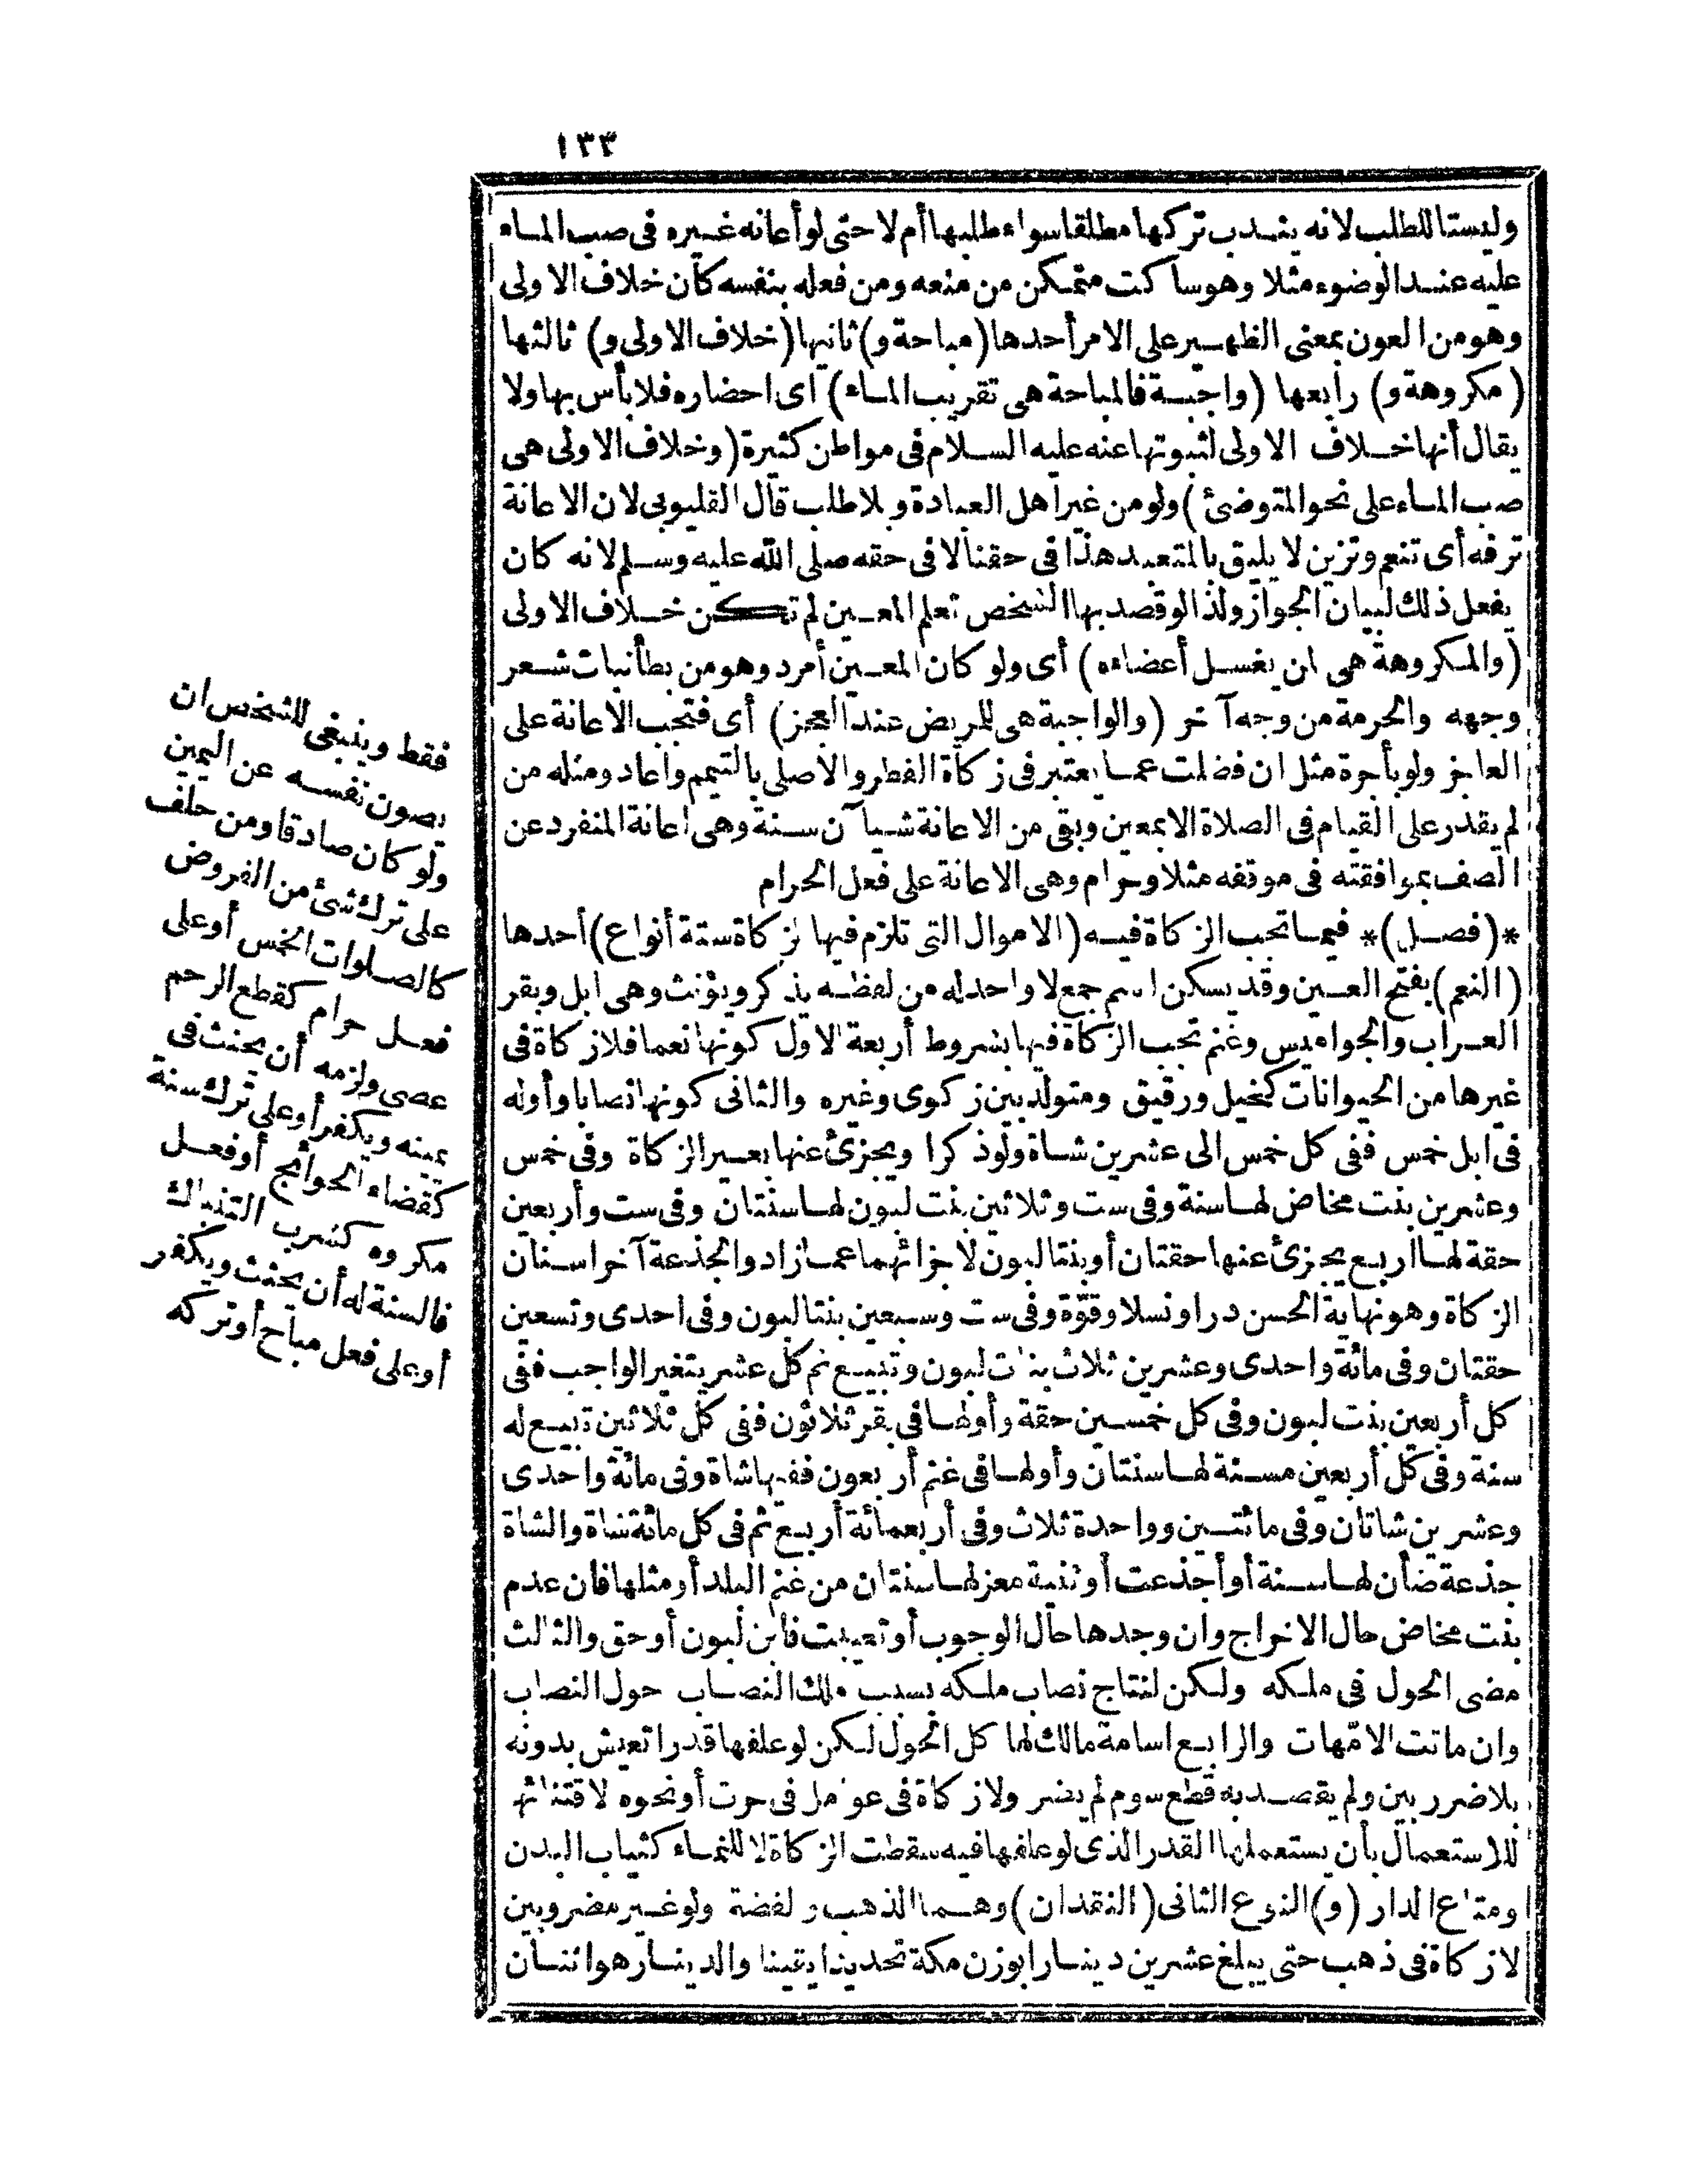 ١٣٣
وليستا للطلب لانه يندب تركها مطلقا سواء طلبها أم لا حتى لو أعانه غيره فى صب الماء
عليه عند الوضوء مثلا وهو ساكت متمكن من منعه ومن فعله بنفسه كان خلاف الاولى
وهو من العون بمعنى الظهير على الامر أحدها (مباحة و) ثانيها (خلاف الاولى و) ثالثها
(مكروهة و) رابعها (واجبة فالمباحة هى تقريب الماء) أى احضاره فلا بأس بها ولا
يقال أنها خلاف الاولى لثبوتها عنه عليه السلام فى مواطن كثيرة (وخلاف الاولى هى
صب الماء على نحو المتوضئ) ولو من غير أهل العبادة وبلا طلب قال القليوبى لان الاعانة
ترفه أى تنعم وتزين لا يليق بالمتعبد هذا فى حقنا لا فى حقه صلى الله عليه وسلم لانه كان
يفعل ذلك لبيان الجواز ولذا لو قصد بها الشخص تعلم المعين لم تكن خلاف الاولى
(والمكروهة هى ان يغسل أعضاءه) أى ولو كان المعين أمرد وهو من بطأ نبات شعر
وجهه والحرمة من وجه آخر (والواجبة هى للمريض عند العجز) أى فتجب الاعانة على
العاجز ولو بأجرة مثل ان فضلت عما يعتبر فى زكاة الفطر والا صلى بالتيمم وأعاد ومثله من
لم يقدر على القيام فى الصلاة الا بمعين وبقى من الاعانة شيآن سنة وهى اعانة المنفرد عن
الصف بموافقته فى موقفه مثلا وحرام وهى الاعانة على فعل الحرام
*(فصل)* فيما تجب الزكاة فيه (الاموال التى تلزم فيها الزكاة ستة أنواع) أحدها
(النعم) بفتح العين وقد يسكن اسم جمع لا واحد له من لفظه يذكر ويؤنث وهى ابل وبقر
العراب والجواميس وغنم تجب الزكاة فيها بشروط أربعة الاول كونها نعما فلا زكاة فى
غيرها من الحيوانات كخيل ورقيق ومتولد بين زكوى وغيره والثانى كونها نصابا وأوله
فى ابل خمس ففى كل خمس الى عشرين شاة ولو ذكرا ويجزئ عنها بعير الزكاة وفى خمس
وعشرين بنت مخاض لها سنة وفى ست وثلاثين بنت لبون لها سنتان وفى ست وأربعين
حقة لها أربع يجزئ عنها حقتان أو بنتا لبون لاجزائهما عما زاد والجذعة آخر اسنان
الزكاة وهو نهاية الحسن درا ونسلا وقوّة وفى ست وسبعين بنتا لبون وفى احدى وتسعين
حقتان وفى مائة واحدى وعشرين ثلاث بنات لبون وتبيع ثم كل عشر يتغير الواجب ففى
كل أربعين بنت لبون وفى كل خمسين حقة وأولها فى بقر ثلاثون ففى كل ثلاثين تبيع له
سنة وفى كل أربعين مسنة لها سنتان وأولها فى غنم أربعون ففيها شاة وفى مائة واحدى
وعشرين شاتان وفى مائتين وواحدة ثلاث وفى أربعمائة أربع ثم فى كل مائة شاة والشاة
جذعة ضأن لها سنة أو أجذعت أو ثنية معز لها سنتان من غنم البلد أو مثلها فان عدم
بنت مخاض حال الاخراج وان وجدها حال الوجوب أو تعيبت فابن لبون أو حق والثالث
مضى الحول فى ملكه ولكن لنتاج نصاب ملكه بسبب ملك النصاب حول النصاب
وان ماتت الامّهات والرابع اسامة مالك لها كل الحول لكن لو علفها قدرا تعيش بدونه
بلا ضرر بين ولم يقصد به قطع سوم لم يضر ولا زكاة فى عوامل فى حرث أو نحوه لاقتنائها
للاستعمال بأن يستعملها القدر الذى لو علفها فيه سقطت الزكاة لا للنماء كثياب البدن
ومتاع الدار (و) النوع الثانى (النقدان) وهما الذهب والفضة ولو غير مضروبين
لا زكاة فى ذهب حتى يبلغ عشرين دينارا بوزن مكة تحديدا يقينا والدينار هو اثنان
فقط وينبغى للشخص ان
يصون نفسه عن اليمين
ولو كان صادقا ومن حلف
على ترك شئ من الفروض
كالصلوات الخمس أو على
فعل حرام كقطع الرحم
عصى ولزمه أن يحنث فى
يمينه ويكفر أو على ترك سنة
كقضاء الحوائج أو فعل
مكروه كشرب التنباك
فالسنة له أن يحنث ويكفر
أو على فعل مباح أو تركه